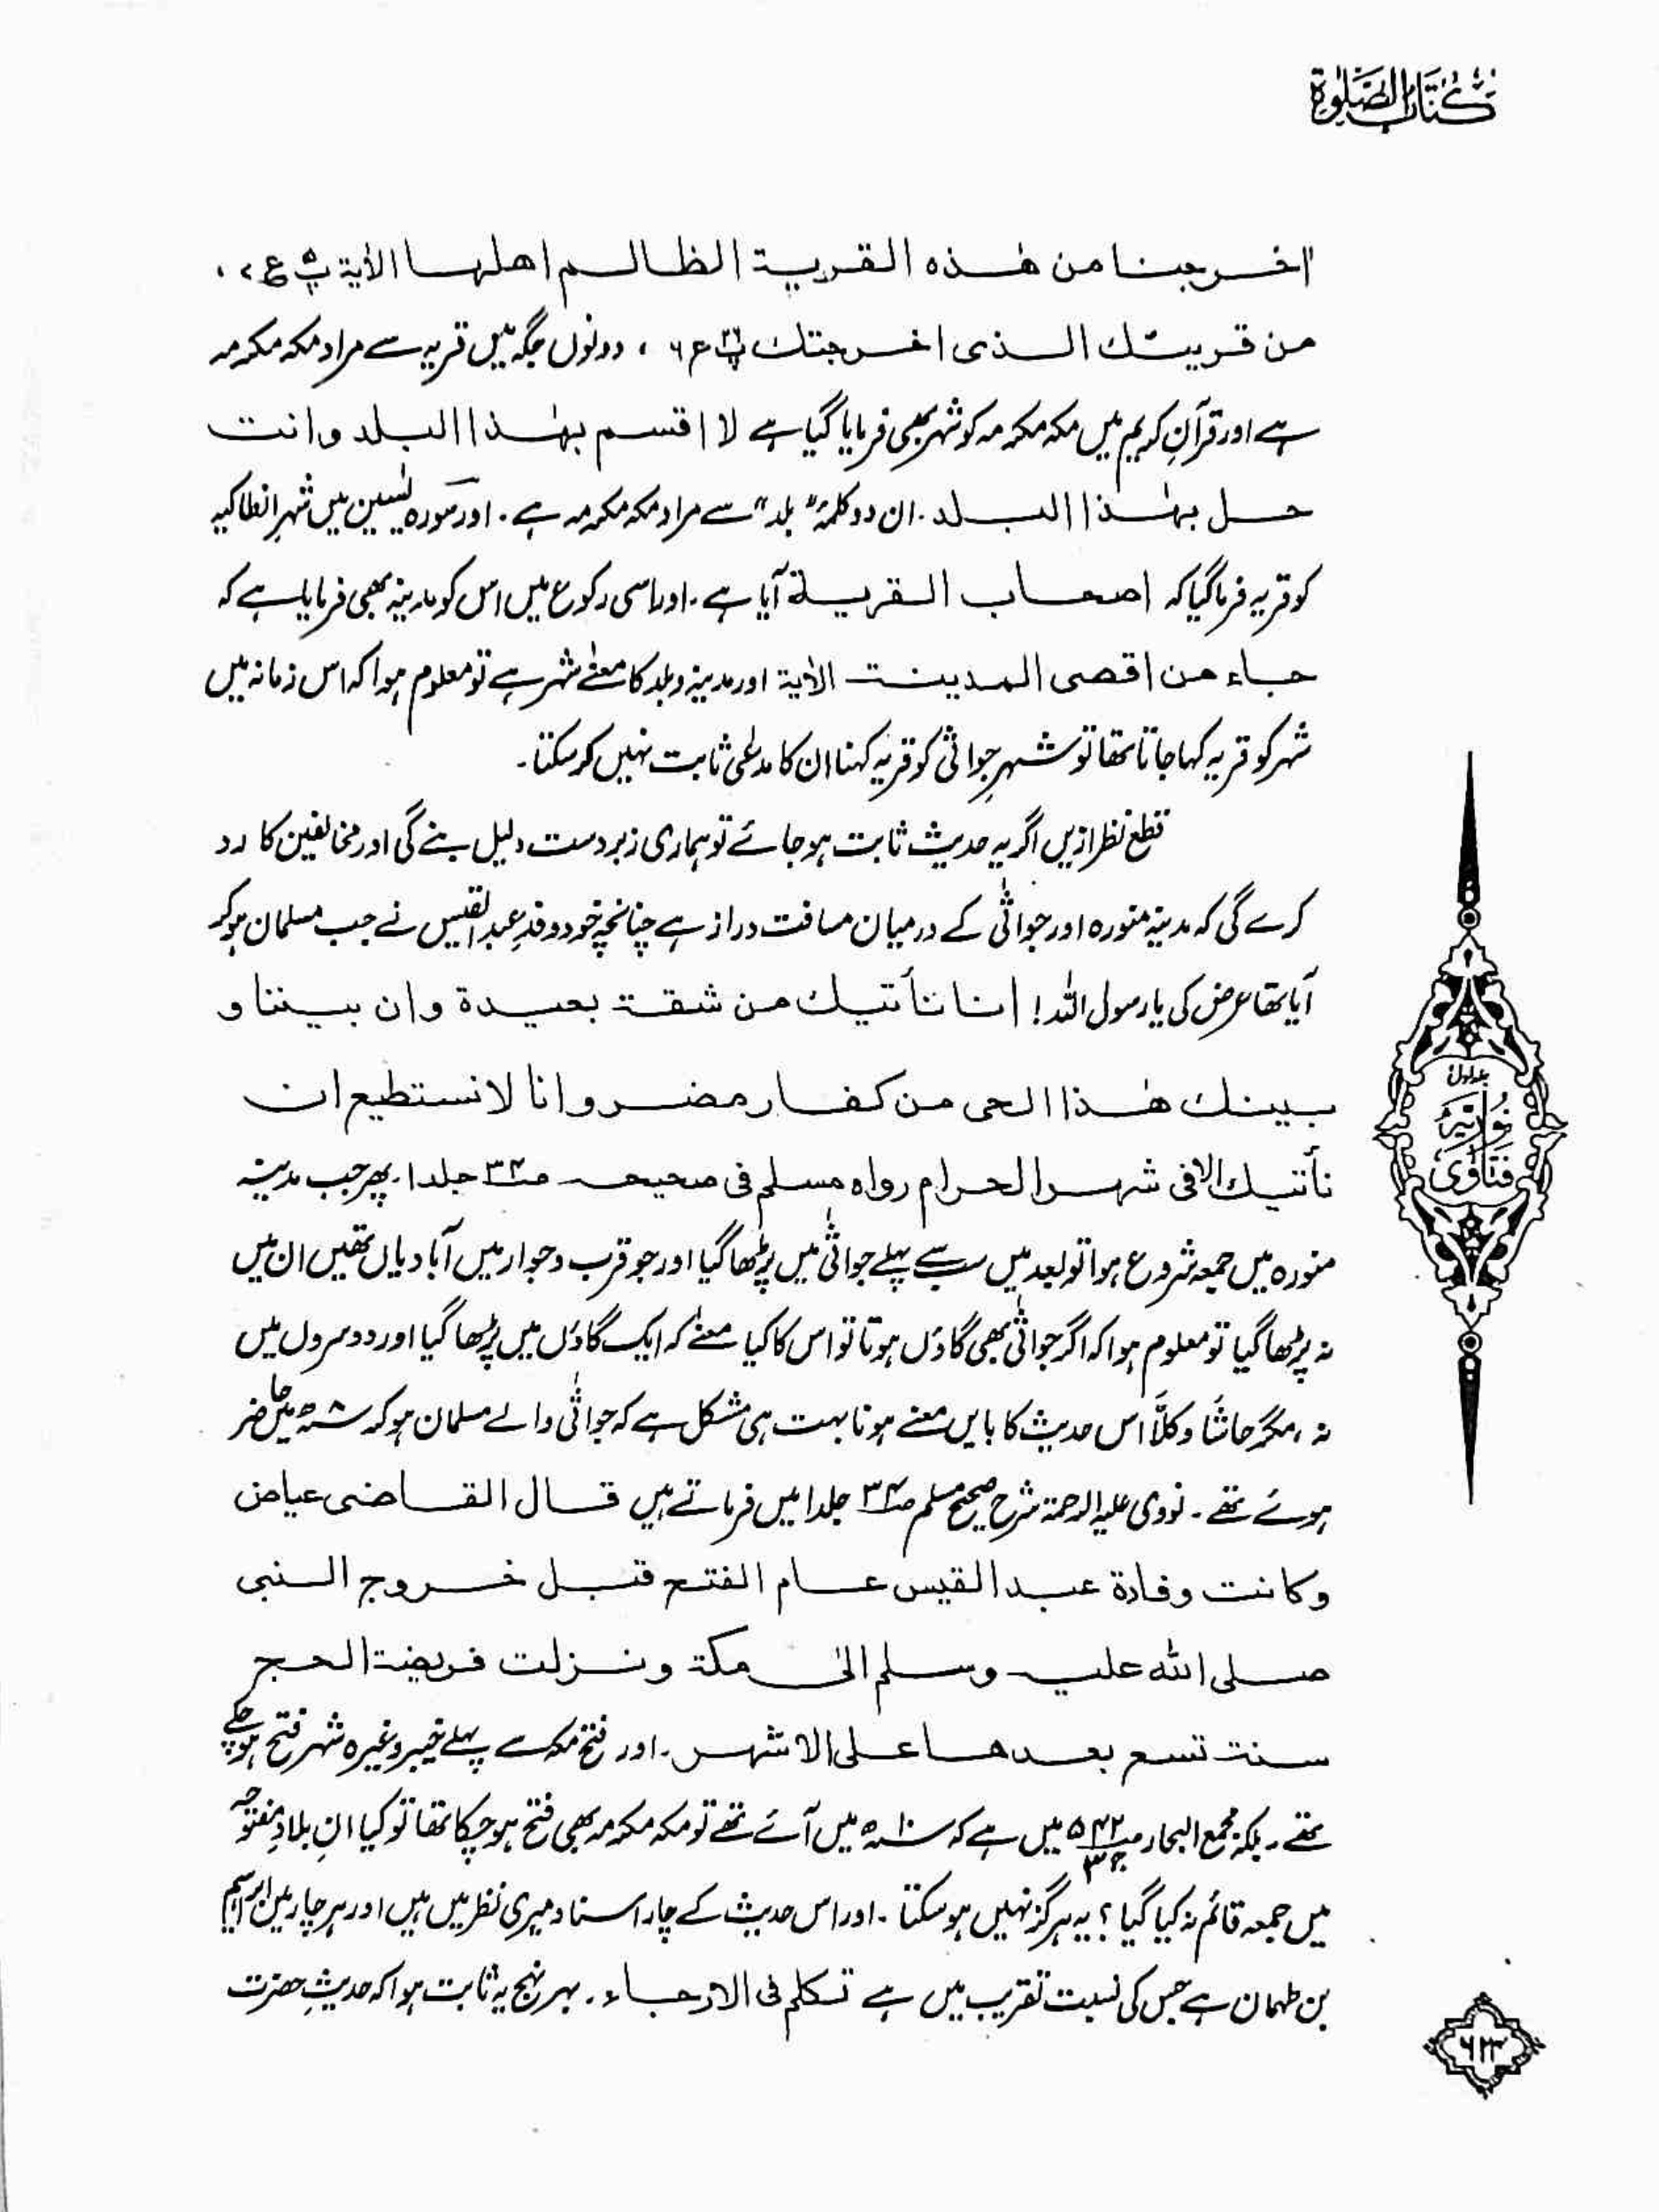 كتاب الصلوة
اخرجنا من هٰذه القرية الظالم اهلها الاٰية پ ۵ ع ۷،
من قريتك الذى اخرجتك پ ۲۶ ع ۶ ، دونوں جگہ میں قریہ سے مراد مکہ مکرمہ
ہے اور قرآنِ کریم میں مکہ مکرمہ کو شہر بھی فرمایا گیا ہے لا اقسم بهٰذا البلد وانت
حل بهٰذا البلد۔ ان دو کلمۂ "بلد" سے مراد مکہ مکرمہ ہے۔ اور سورہ یٰسین میں شہرِ انطاکیہ
کو قریہ فرما گیا کہ اصحاب القرية آیا ہے۔ اور اسی رکوع میں اس کو مدینہ بھی فرمایا ہے کہ
جاء من اقصى المدينة الاٰية اور مدینہ و بلد کا معنٰے شہر ہے تو معلوم ہوا کہ اس زمانہ میں
شہر کو قریہ کہا جاتا تھا تو شہرِ جواثی کو قریہ کہنا ان کا مدعٰی ثابت نہیں کر سکتا۔
قطع نظر ازیں اگر یہ حدیث ثابت ہو جائے تو ہماری زبردست دلیل بنے گی اور مخالفین کا رد
کرے گی کہ مدینہ منورہ اور جواثٰی کے درمیان مسافت دراز ہے چنانچہ خود وفدِ عبدالقیس نے جب مسلمان ہو کر
آیا تھا عرض کی یا رسول اللہ! انا نأتيك من شقة بعيدة وان بيننا و
بينك هٰذا الحى من كفار مضر وانا لا نستطيع ان
نأتيك الا فى شهر الحرام رواه مسلم فى صحيحه ص۳۴ جلد۱۔ پھر جب مدینہ
منورہ میں جمعہ شروع ہوا تو بعد میں سب سے پہلے جواثٰی میں پڑھا گیا اور جو قرب و جوار میں آبادیاں تھیں ان میں
نہ پڑھا گیا تو معلوم ہوا کہ اگر جواثٰی بھی گاؤں ہوتا تو اس کا کیا معنٰے کہ ایک گاؤں میں پڑھا گیا اور دوسروں میں
نہ، مگر حاشا وکلّا اس حدیث کا بایں معنے ہونا بہت ہی مشکل ہے کہ جواثٰی والے مسلمان ہو کر ۸ھ میں حاضر
ہوئے تھے۔ نووی علیہ الرحمۃ شرح صحیح مسلم ص۳۴ جلد۱ میں فرماتے ہیں قال القاضى عياض
وكانت وفادة عبد القيس عام الفتح قبل خروج النبى
صلى الله عليه وسلم الىٰ مكة ونزلت فريضة الحج
سنة تسع بعدها على الاشهر۔ اور فتح مکہ سے پہلے خیبر وغیرہ شہر فتح ہو چکے
تھے۔ بلکہ مجمع البحار ص۵۴۲ ج۳ میں ہے کہ ۱۰ھ میں آئے تھے تو مکہ مکرمہ بھی فتح ہو چکا تھا تو کیا ان بلادِ مفتوحہ
میں جمعہ قائم نہ کیا گیا؟ یہ ہرگز نہیں ہو سکتا۔ اور اس حدیث کے چار اسناد میری نظر میں ہیں اور ہر چار میں ابراہیم
بن طہمان ہے جس کی نسبت تقریب میں ہے تكلم فى الارجاء۔ بہر نہج یہ ثابت ہوا کہ حدیثِ حضرت
جلد اول
فتاوٰی نوریہ
۶۲۳